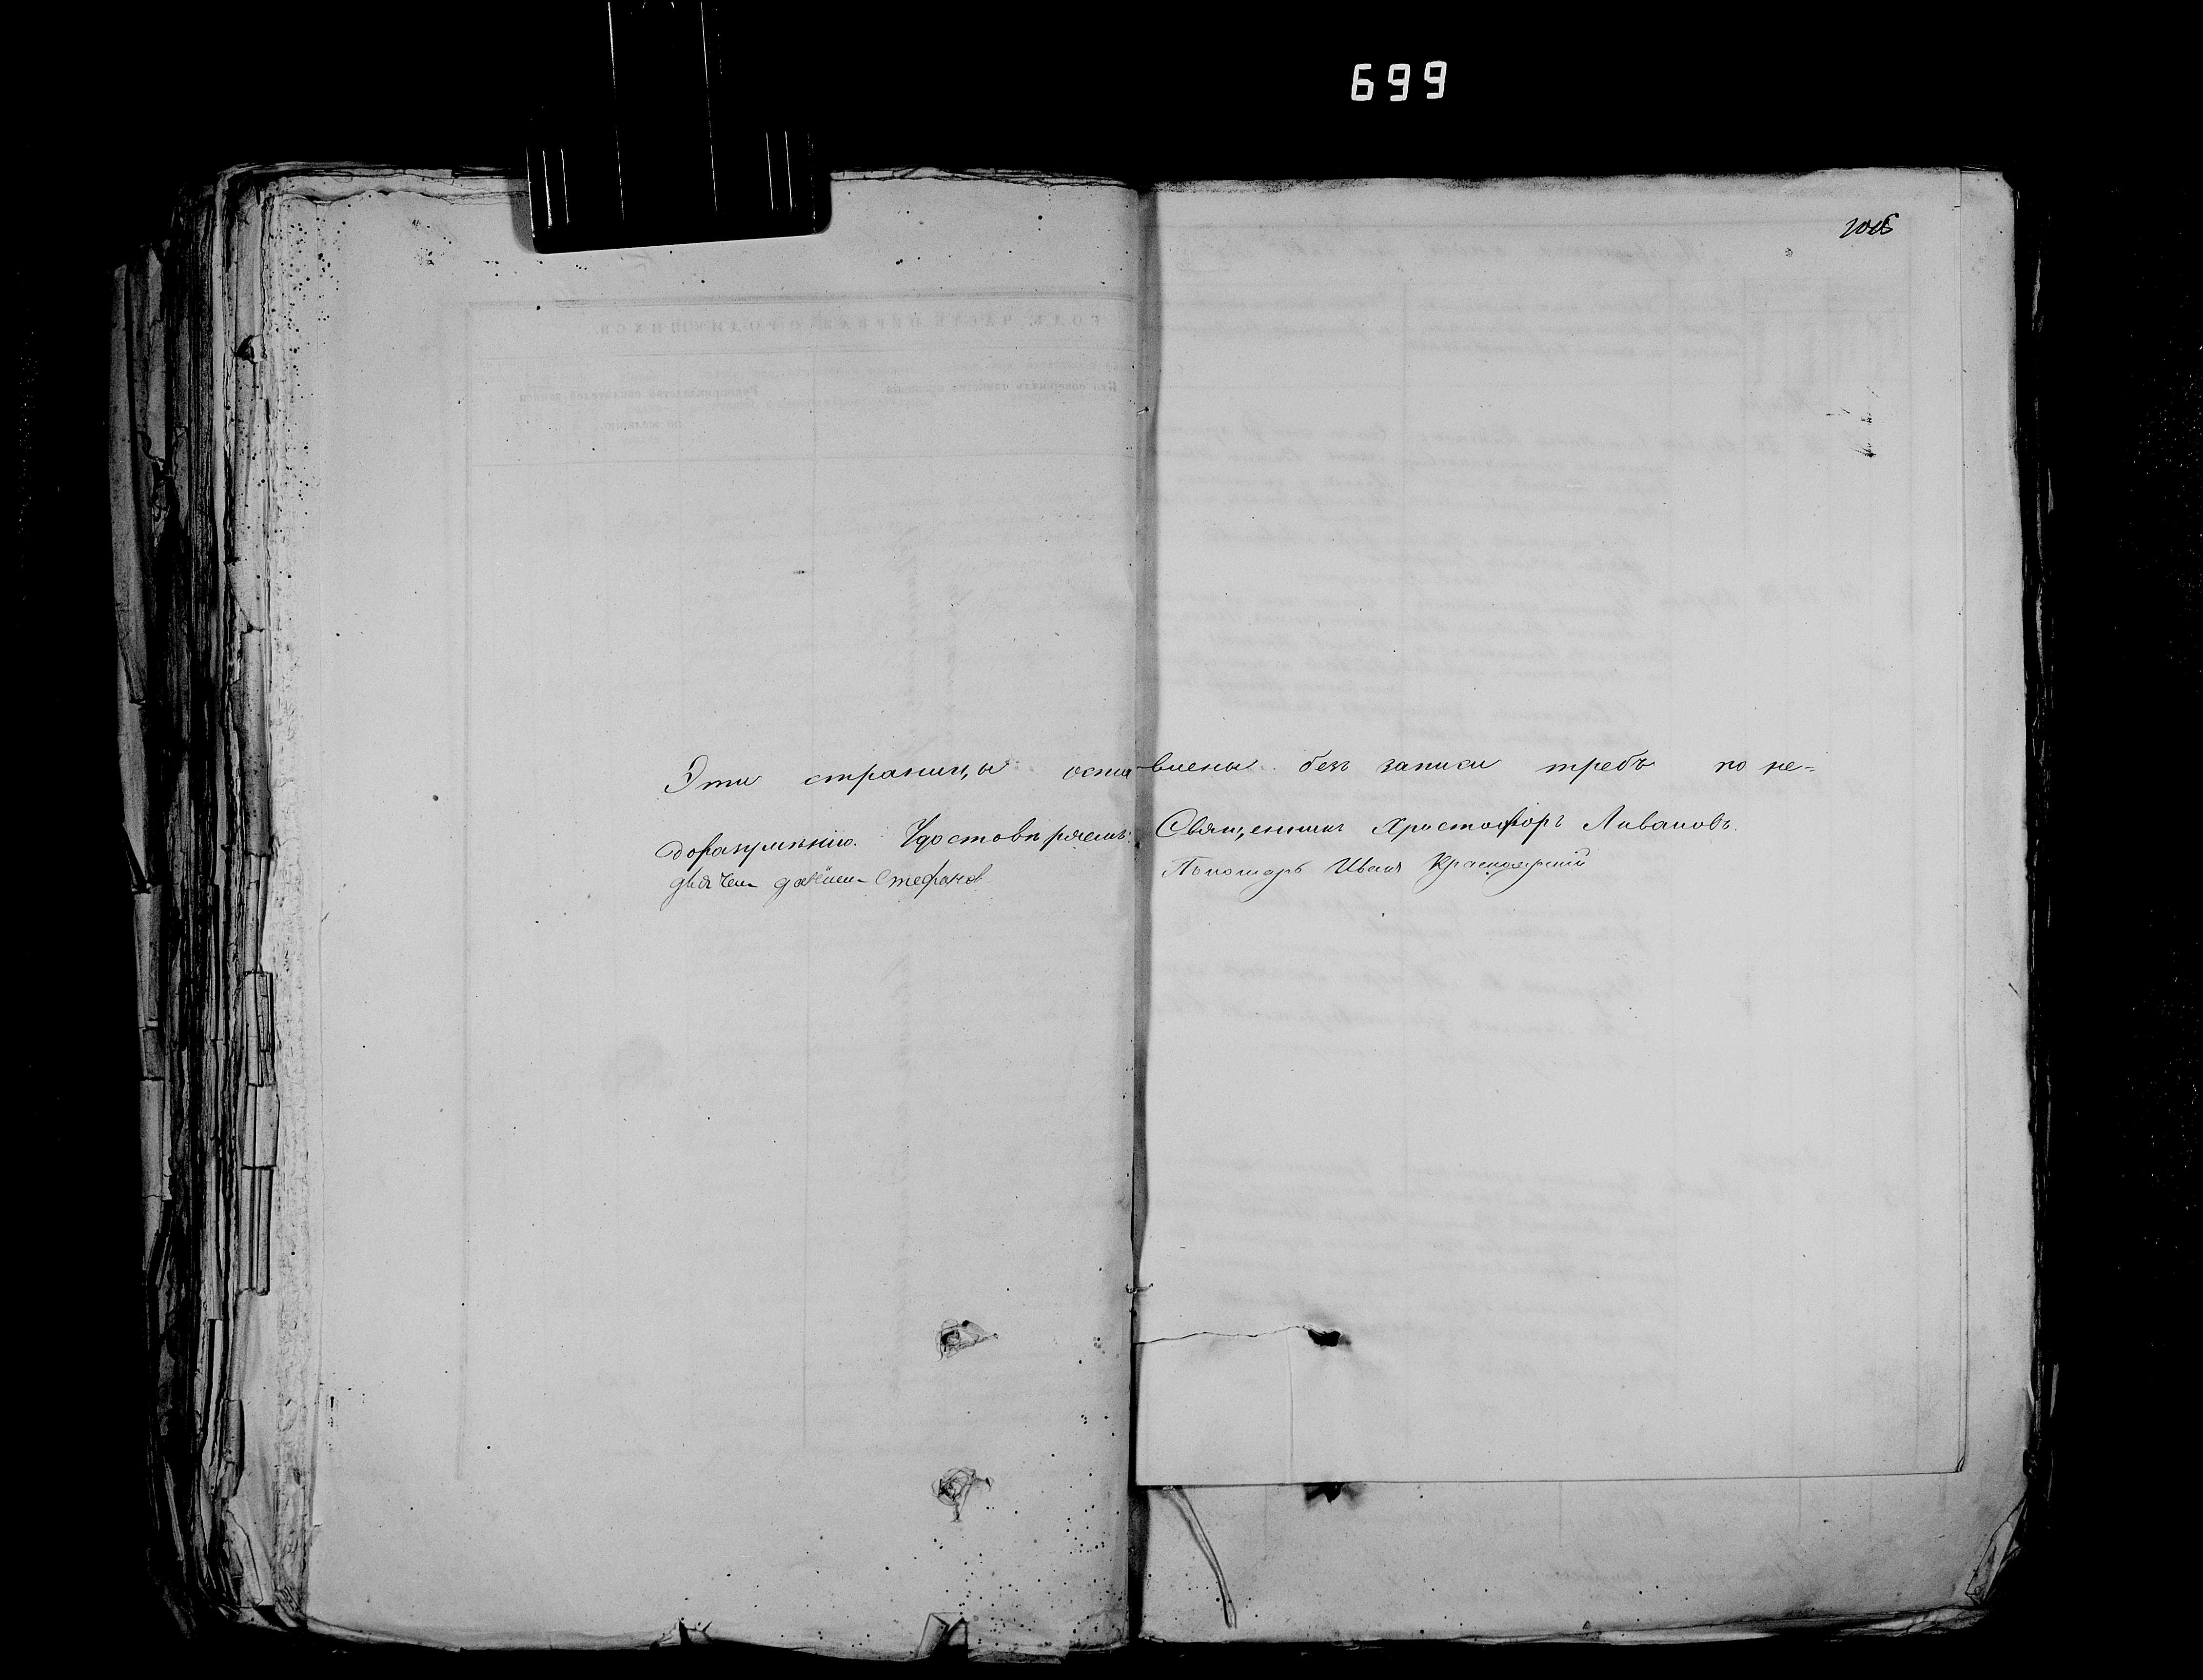 699
Эти страницы оставлены безъ записи требъ по не-
доразумѣнію. Удостовѣряемъ: Священникъ Христофоръ Ливановъ.
Стефановъ Пономарь Иванъ Красноярскій